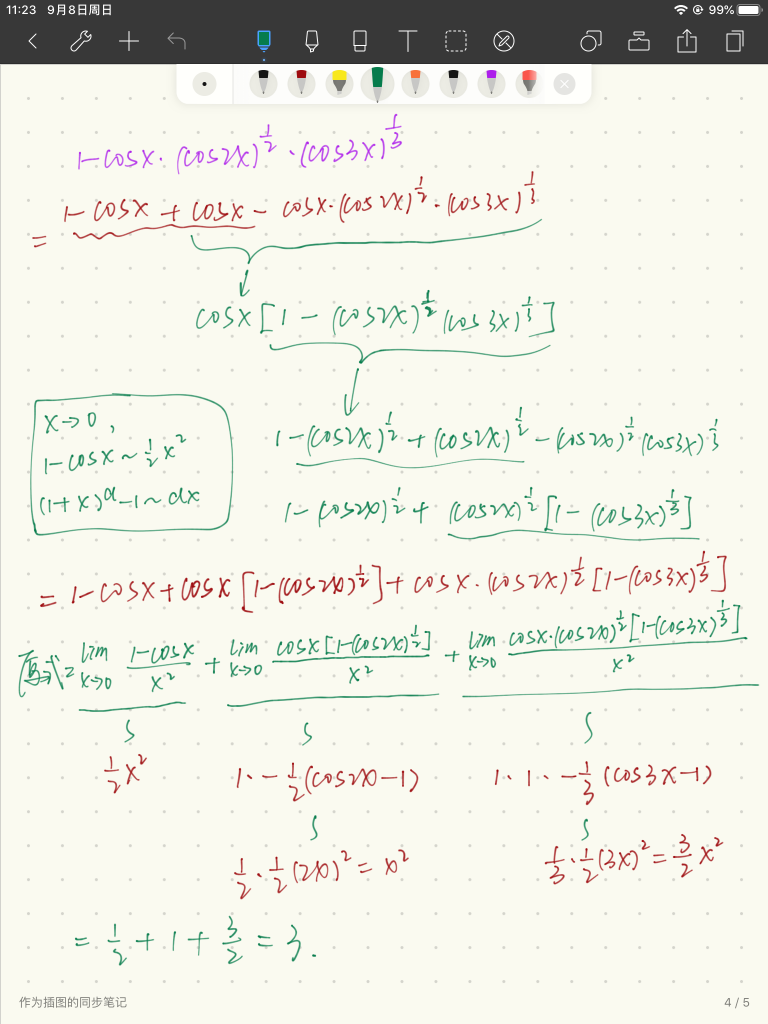 11:23 9月8日周日 99%
1-cosx·(cos2x)^{1/2}·(cos3x)^{1/3}
= 1-cosx + cosx - cosx·(cos2x)^{1/2}·(cos3x)^{1/3}
cosx[1-(cos2x)^{1/2}(cos3x)^{1/3}]
x→0,
1-cosx~\frac{1}{2}x^2
(1+x)^α-1~αx
1-(cos2x)^{1/2}+(cos2x)^{1/2}-(cos2x)^{1/2}(cos3x)^{1/3}
1-(cos2x)^{1/2}+(cos2x)^{1/2}[1-(cos3x)^{1/3}]
= 1-cosx+cosx[1-(cos2x)^{1/2}]+cosx·(cos2x)^{1/2}[1-(cos3x)^{1/3}]
原式=\lim_{x→0}\frac{1-cosx}{x^2}+\lim_{x→0}\frac{cosx[1-(cos2x)^{1/2}]}{x^2}+\lim_{x→0}\frac{cosx·(cos2x)^{1/2}[1-(cos3x)^{1/3}]}{x^2}
\frac{1}{2}x^2 1·-\frac{1}{2}(cos2x-1) 1·1·-\frac{1}{3}(cos3x-1)
\frac{1}{2}·\frac{1}{2}(2x)^2=x^2 \frac{1}{3}·\frac{1}{2}(3x)^2=\frac{3}{2}x^2
=\frac{1}{2}+1+\frac{3}{2}=3.
作为插图的同步笔记 4 / 5